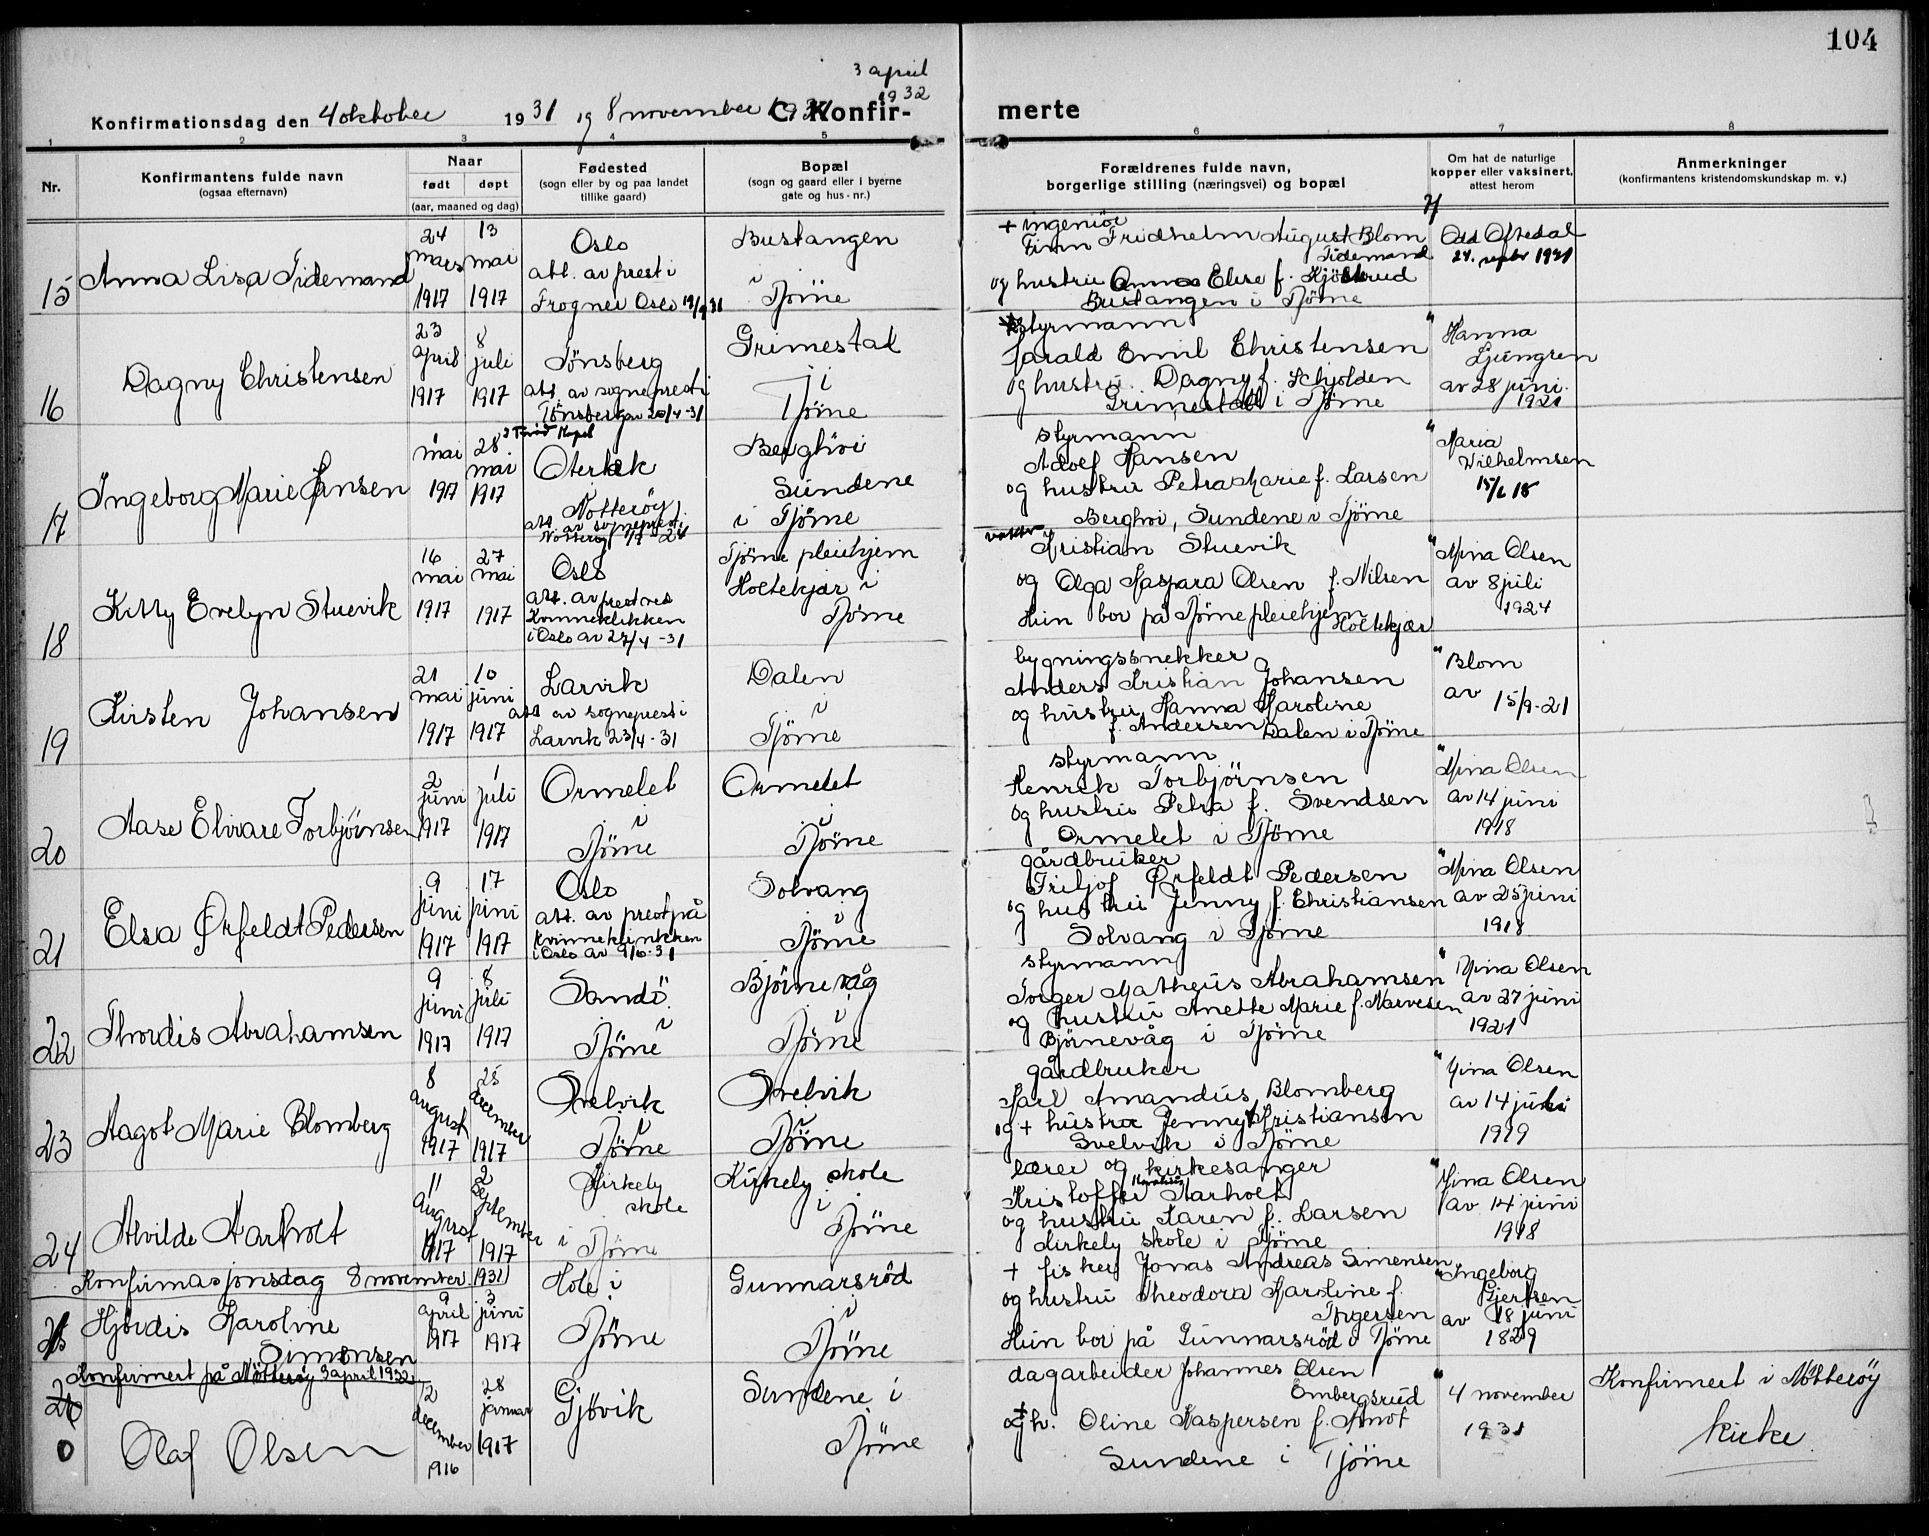 104
3 april
1932
Konfirmationsdag den 4 oktober 1931 og 8 november 1931 C. Konfirmerte
1 2 3 4 5 6 7 8
Nr.
Konfirmantens fulde navn
(ogsaa efternavn)
Naar
født døpt
(aar, maaned og dag)
Fødested
(sogn eller by og paa landet
tillike gaard)
Bopæl
(sogn og gaard eller i byerne
gate og hus-nr.)
Forældrenes fulde navn,
borgerlige stilling (næringsvei) og bopæl
Om hat de naturlige
kopper eller vaksinert,
attest herom
Anmerkninger
(konfirmantens kristendomskundskap m. v.)
15
Anna Lisa Tidemand
24 mars 1917
13 mai 1917
Oslo
att. av prest i
Frogner Oslo
Bustangen
i
Tjöme
+ ingeniör
Finn Fridhelm August Blom
Tidemand
og hustru Anna Elise f. Hjöllrud
Bustangen i Tjöme
Odd Oftedal
24. septbr 1921
16
Dagny Christensen
23 april 1917
8 juli 1917
Tönsberg
att. av sogneprest i
Tönsberg av 20/4-31
Grimestad
i
Tjöme
styrmann
Harald Emil Christensen
og hustru Dagny f. Schjolden
Grimestad i Tjöme
Hanna
Ljungren
av 28 juni
1921
17
Ingeborg Marie Hansen
1 mai 1917
28 mai 1917
Oterbek
Nötteröy
att. av sogneprest i
Berghöi
Sundene
i Tjöme
styrmann
Adolf Hansen
og hustru Petra Marie f. Larsen
Berghöi, Sundene i Tjöme
Maria
Wilhelmsen
15/6 18
18
Kitty Evelyn Stuevik
16 mai 1917
27 mai 1917
Oslo
att. av prest ved
Kvinneklinikken
i Oslo av 27/4-31
Tjöme pleiehjem
Holtekjær i
Tjöme
Kristian Stuevik
og Olga Kaspara Olsen f. Nilsen
Hun bor på Tjöme pleiehjem
Holtekjær
Mina Olsen
av 8 juli
1924
19
Kirsten Johansen
21 mai 1917
10 juni 1917
Larvik
att av sogneprest i
Larvik 23/4-31
Dalen
i
Tjöme
bygningssnekker
Anders Kristian Johansen
og hustru Hanna Karoline
f. Andersen Dalen i Tjöme
Blom
av 15/9-21
20
Aase Elvira Torbjörnsen
2 juni 1917
1 juli 1917
Ormelet
i
Tjöme
Ormelet
i
Tjöme
styrmann
Henrik Torbjörnsen
og hustru Petra f. Svendsen
Ormelet i Tjöme
Mina Olsen
av 14 juni
1918
21
Elsa Ørfeldt Pedersen
9 juni 1917
17 juni 1917
Oslo
att. av prest på
kvinneklinikken
i Oslo av 9/6-31
Solvang
i
Tjöme
gårdbruker
Fritjof Ørfeldt Pedersen
og hustru Jenny f. Christiansen
Solvang i Tjöme
Mina Olsen
av 25 juni
1918
22
Thordis Abrahamsen
9 juni 1917
8 juli 1917
Sandö
i
Tjöme
Björnevåg
i
Tjöme
styrmann
Torger Matheus Abrahamsen
og hustru Anette Marie f. Narvesen
Björnevåg i Tjöme
Mina Olsen
av 27 juni
1921
23
Aagot Marie Blomberg
8 august 1917
25 december 1917
Svelvik
i
Tjöme
Svelvik
i
Tjöme
gårdbruker
Karl Amandus Blomberg
og + hustru Jenny f. Kristiansen
Svelvik i Tjöme
Mina Olsen
av 14 juli
1919
24
Alvilde Aarholt
11 august 1917
2 september 1917
Kirkely
skole
i Tjöme
Kirkely skole
i
Tjöme
lærer og kirkesanger
Kristoffer Aarholt
og hustru Karen f. Larsen
Kirkely skole i Tjöme
Mina Olsen
av 14 juni
1918
Konfirmasjonsdag 8 november 1931
25
Hjördis Karoline
Simonsen
9 april 1917
3 juni 1917
Hole i
Tjöme
Gunnarsröd
i
Tjöme
+ fisker Jonas Andreas Simensen
og hustru Theodora Karoline f.
Torgersen
Hun bor på Gunnarsröd i Tjöme
Ingeborg
Gjertsen
av 18 juni
1829
Konfirmert på Nötteröy 3 april 1932
26
0
Olaf Olsen
12 december 1916
28 januar 1917
Gjövik
Sundene i
Tjöme
dagarbeider Johannes Olsen
Embergsrud
og h. Oline Kaspersen f. Knot
Sundene i Tjöme
4 november
1931
Konfirmert i Nötteröy
kirke